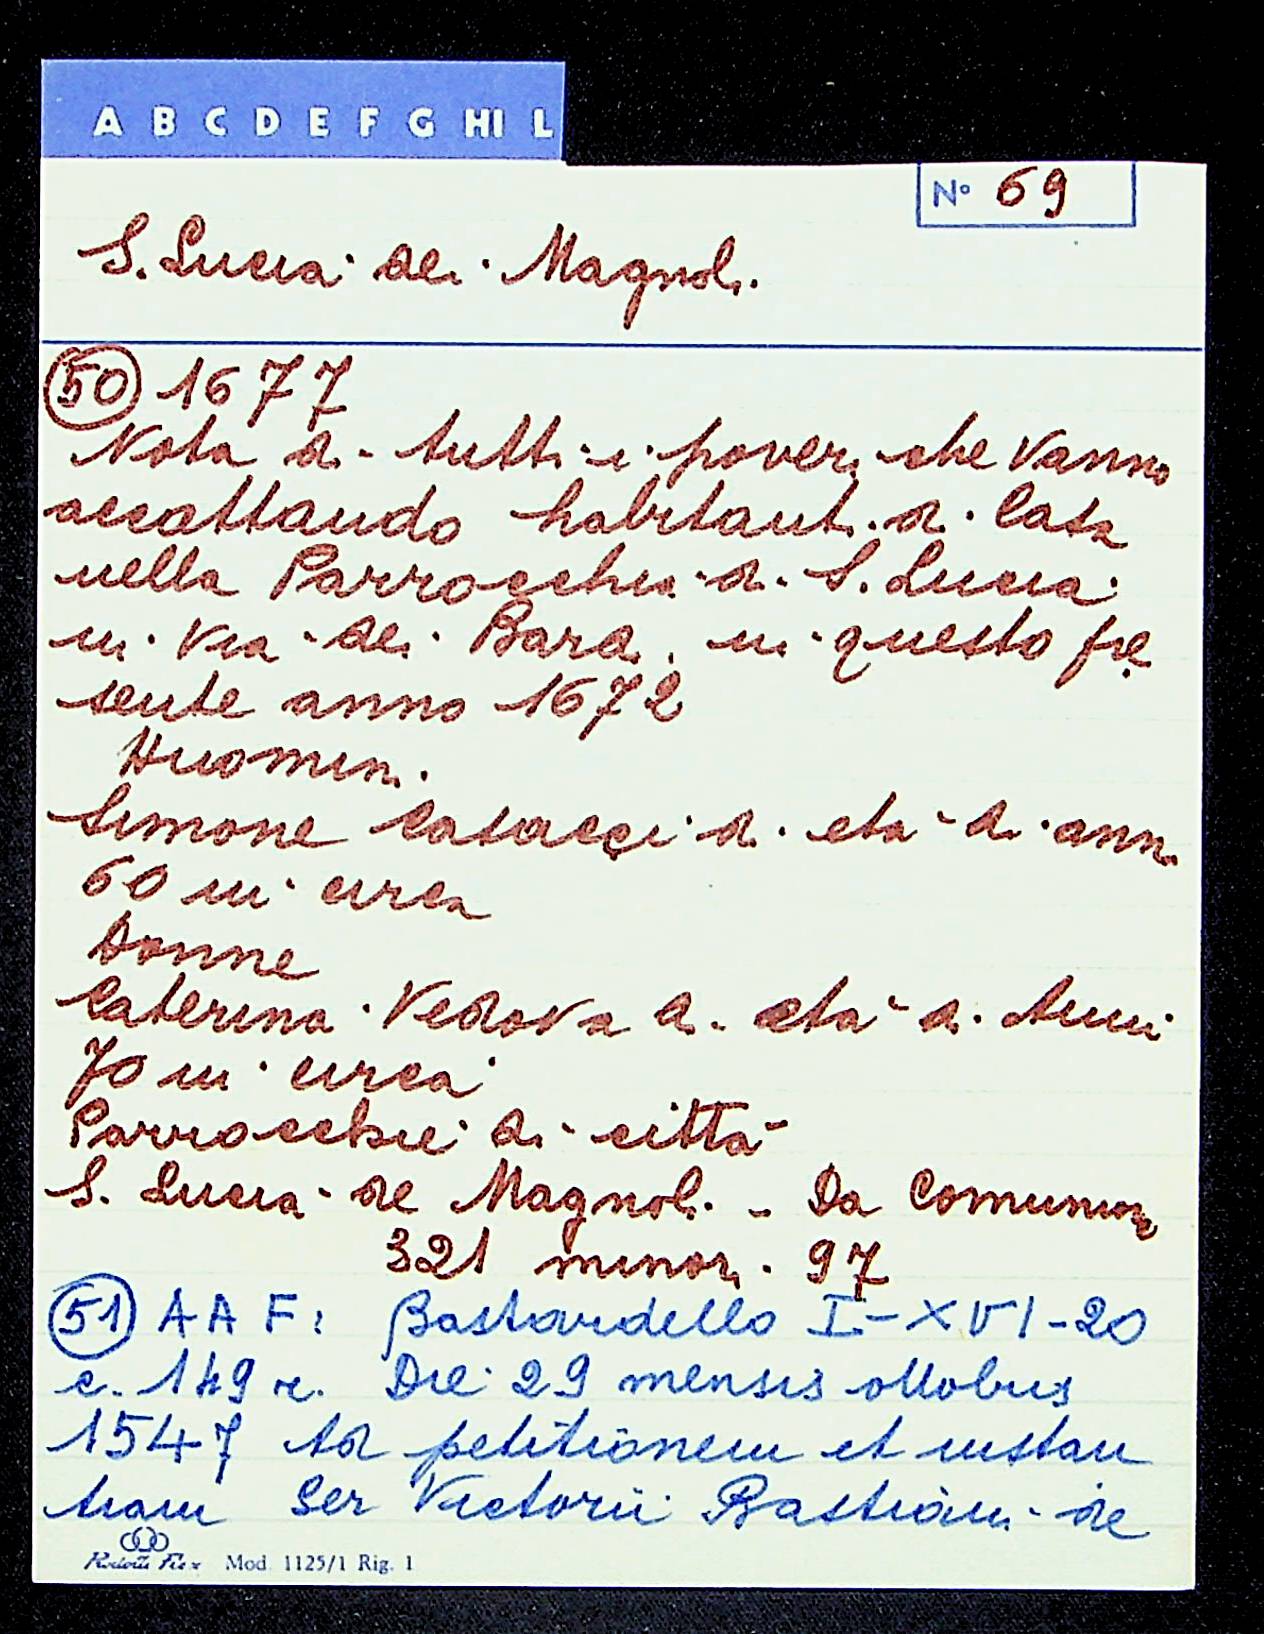 A B C D E F G HI L
N° 69
S. Lucia dei Magnoli
50 1677
Nota di tutti i poveri che vanno
accattando habitanti di Casa
nella Parrocchia di S. Lucia
in Via dei Bardi in questo pre
sente anno 1672
Huomini
Simone Casacci di età di anni
60 in circa
Donne
Caterina Vedova di età di Anni
70 in circa
Parrocchie di città
S. Lucia de Magnoli - Da Comunione
321 minori 97
51 A A F: Bastardello I-XVI-20
c. 149 r. Die 29 mensis ottobris
1547 Ad petitionem et instan
tiam Ser Victorii Bastiani de
Mod. 1125/1 Rig. 1